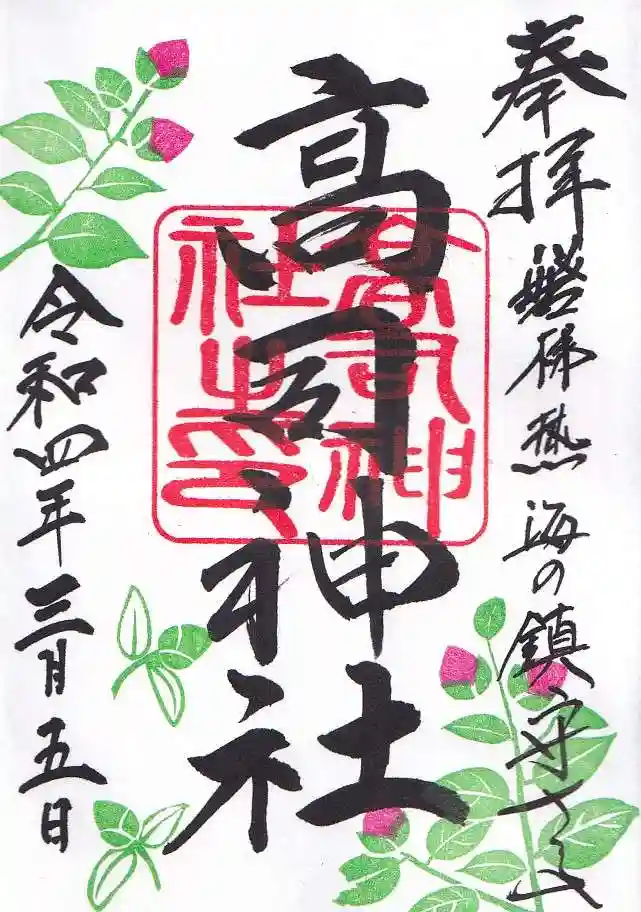 奉拝 磐梯熱海の鎮守さま
高司神社
高司神
社之印
令和四年三月五日